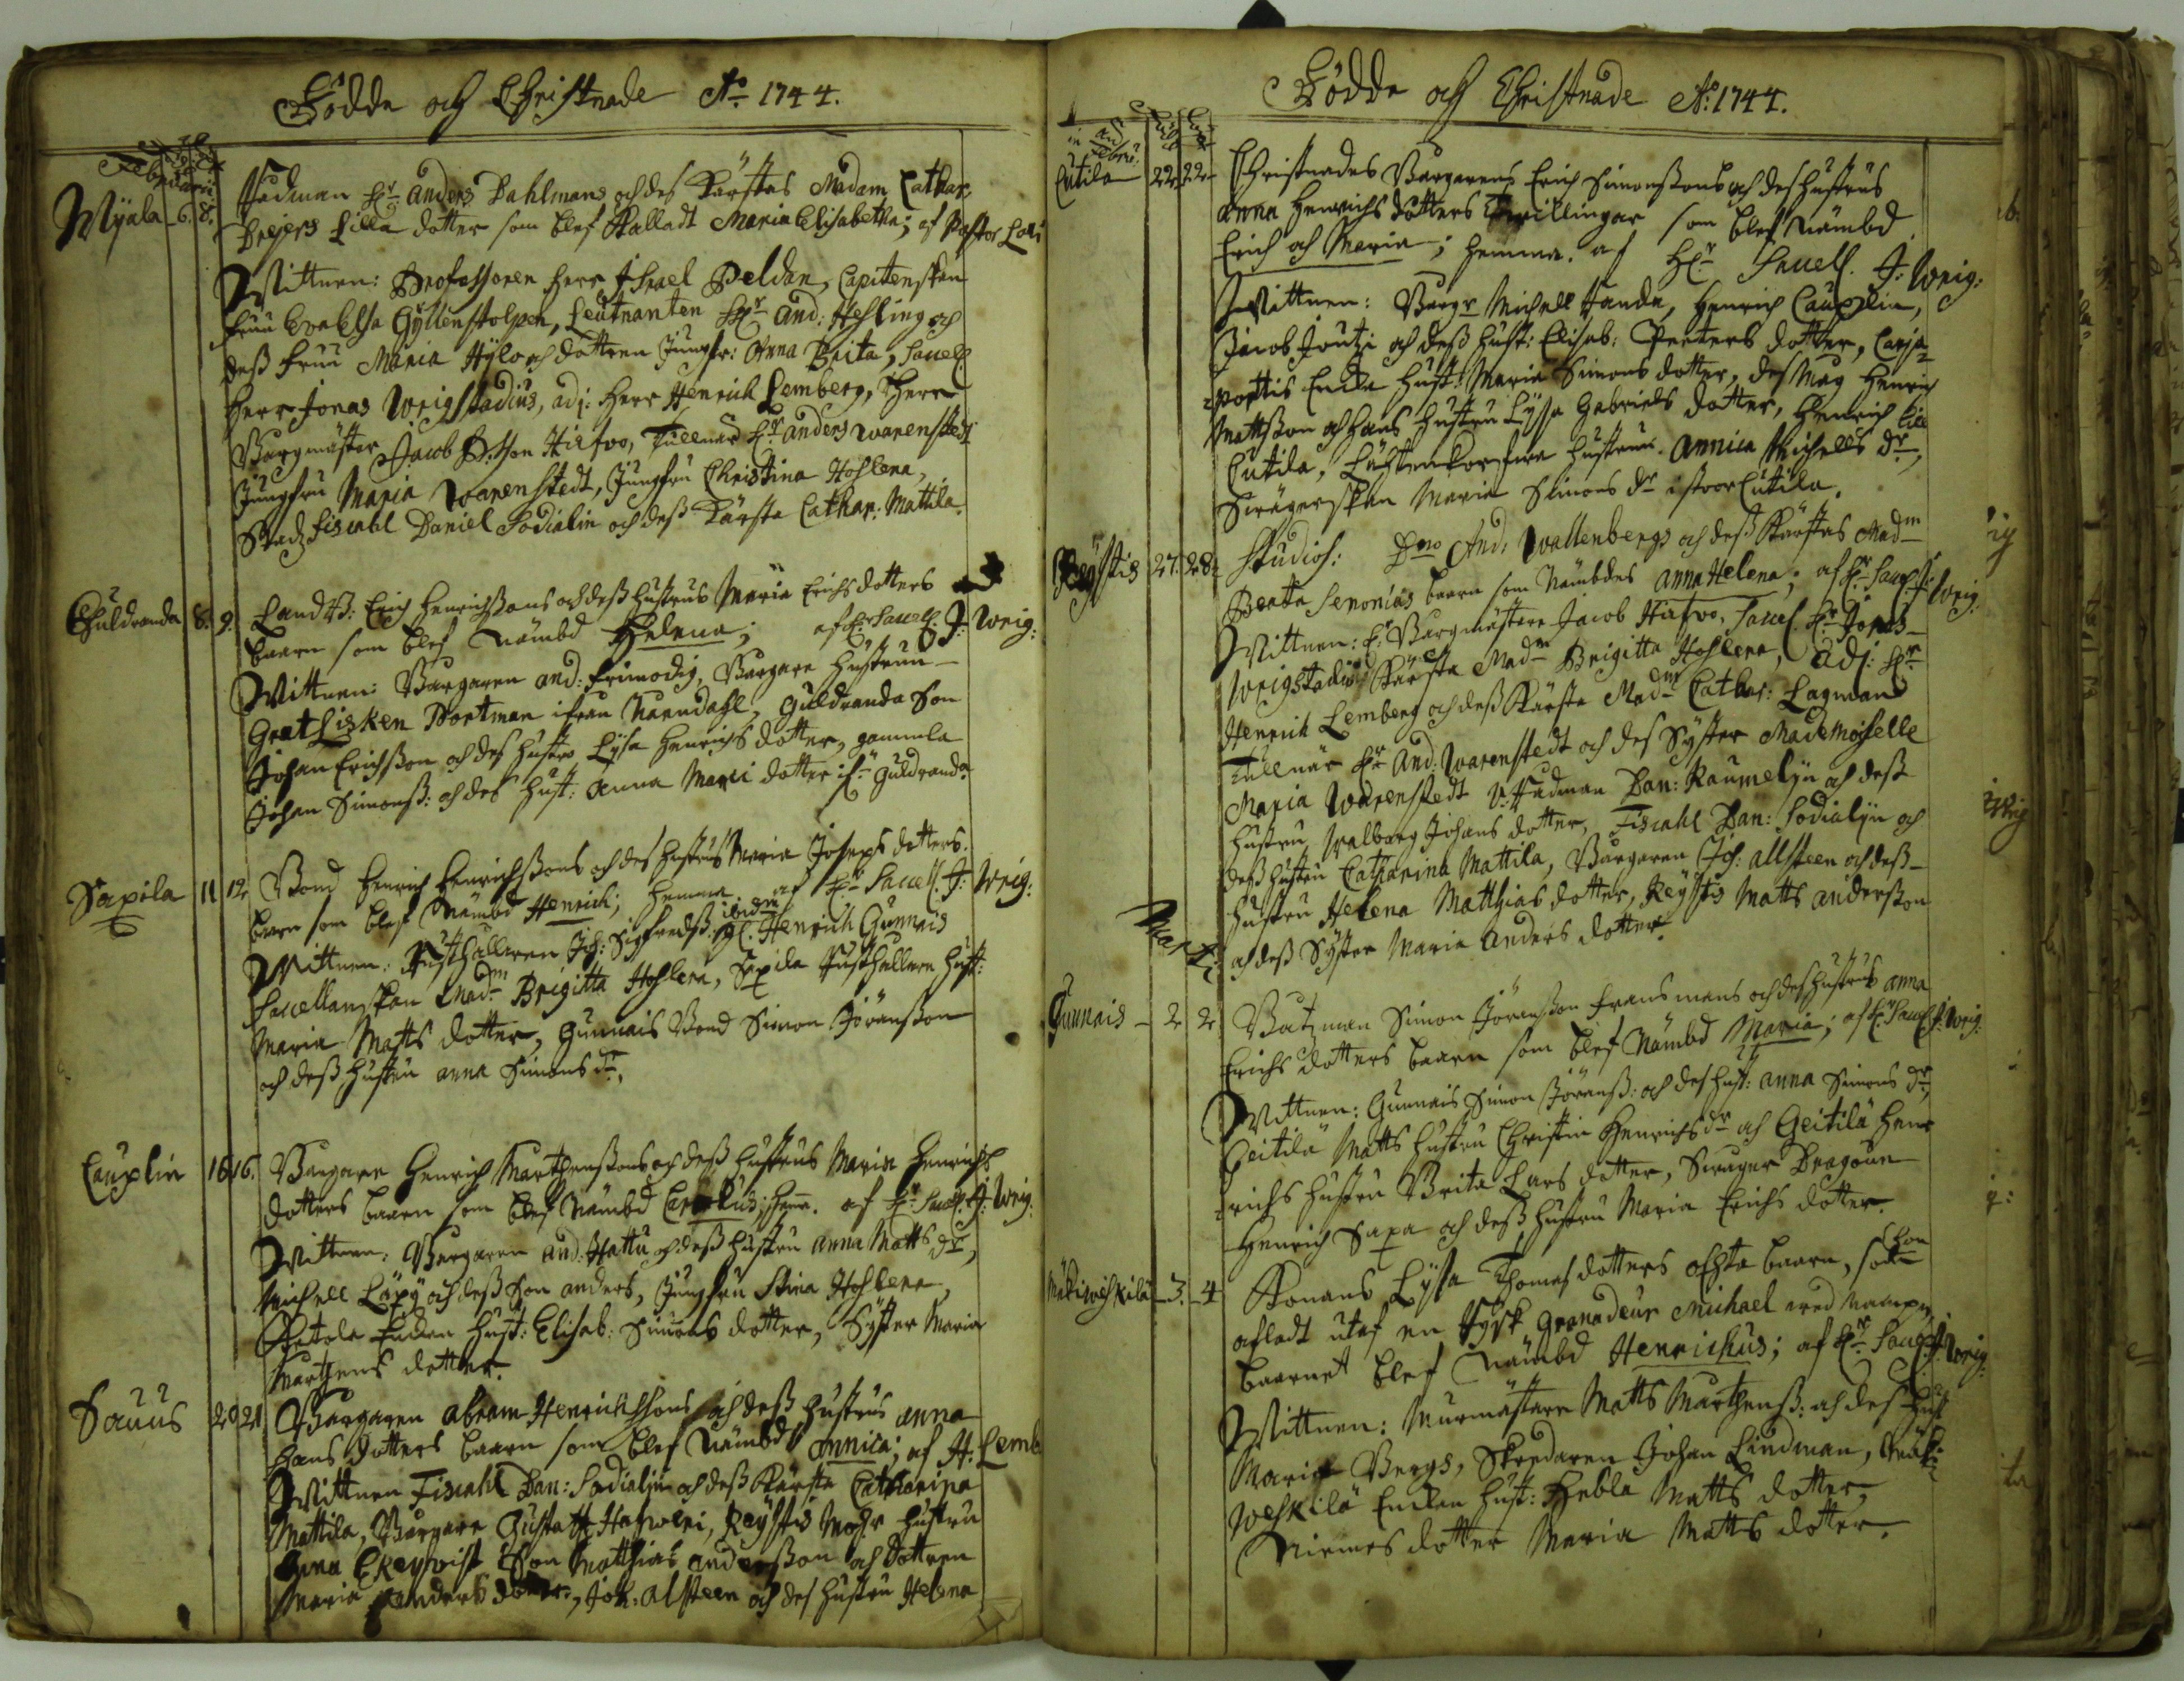 Födde och Christnade Ao 1744.
Februarii
Mÿala 6. 8. Rådman Hr Anders Dahlmans och des Kärstas Madam Cathar.
Brejers lilla dotter som blef Kalladt Maria Elisabetha; af Pastor Loci
Wittnen: Professoren herr Israel Peldan, Capitenskan
fruu Eva Elsa Gÿllenstolpen, Leutnanten Hr And: Hesling och
dess fruu Maria Hÿlo och dottren Jungfr: Anna Brita, Sacell.
herr Jonas Wrigstadius, adj: herr Henrich Lemberg, Herr
Borgmäster Jacob Hirfvo, Tullnär Hr Anders Warenstedt
Jungfru Maria Warenstedt, Jungfru Christina Hohlena,
Stadz fiscahl Daniel Sodialin och dess Kärsta Cathar: Mattila.
Guldranda 8. 9. Landtb: Erich Henrichssons och dess hustrus Maria Erichs dotters
baarn som blef Nämbd Helena; af Hr Sacell. J: Wrig:
Wittnen: Borgaren And: frimodig, Borgare hustrun
Gretlisken Portman ifrån Narndahl, Guldranda Son
Johan Erichsson och des hustro Lisa Henrichs dotter, gammla
Johan Simonss: och des hust: Anna Marci dotter ifr Guldranda
Sapila 11 12 Bond Henrich Henrichssons och des hustrus Maria Josephs dotters.
baarn som blef Nämbd Henrich; hemma af Hr Sacell. J: Wrig:
Wittnen: Rusthallaren Joh: Sigfredss: ibidm Henrich Gunnais
Sacellanskan Madm Brigitta Hohlena, Sapila Rusthallare hust:
Maria Matts dotter, Gunnais Bond Simon Jöransson
och dess hustru Anna Simons dr,
Cauplin 16 16. Borgare Henrich Martzenssons och dess hustrus Maria Henrichs
dotters baarn som blef Nämbd hema. af Hr Sacell. J: Wrig:
Wittnen: Borgaren And: Hattu och dess hustru Anna Matts dr,
Michell Läpÿ och dess Son Anders, Jungfru Stina Hohlena,
Enkan Hust: Elisab: Simons dotter, Sÿster Maria
Martzens dotter.
Sauus 20 21 Borgaren Abram Henrichssons och dess hustrus Anna
Hans dotters baarn som blef Nämbd Annica; af H: Lemb
Wittnen Fiscahl Dan: Sodialin och dess Kärsta Catharina
Mattila, Borgare Gustaff Hafveri, Reÿstis Mohr hustru
Anna Ekeqvist Son Matthias Andersson och Dottren
Maria Anders dotter, Joh: Alsteen och des hustru Helena
Födde och Christnade Ao 1744.
Februa
Cutila 22 22 Christnades Borgarens Erich Simonssons och des hustrus
Anna Henrichs dotters Twillingar som blef Nämbd
Erich och Maria; hemma. af Hr Sacell. J: Wrig:
Wittnen: Borgr Michell Tanda, Henrich Cauplin,
Jacob Joutzi och dess hust: Elisab: Peeters dotter, Carja-
portis Enka hust: Maria Simons dotter, des Mag Henrich
Mattsson och hans hustru Lÿsa Gabriels dotter, Henrich lill
Cutila, hustrun Annica Michells dr,
Swägerskan Maria Simons dr i stoor Cutila.
Reÿstis 27. 28. Studios: Dno And: Wallenbergs och dess Kärstas Madm
Beata Senonias baarn som Nämbdes Anna Helena; af Hr Sacell. J: Wrig:
Wittnen: Hr Borgmästare Jacob Hirfvo, Sacell. Hr Jonas
Wrigstadii Kärsta Madm Brigitta Hohlena, Adj: Hr
Henrich Lemberg och dess Kärsta Madm Cathar: Lagman
Tullnär Hr And: Warenstedt och des Sÿster Mademoiselle
Maria Warenstedt Rådman Dan: Raumelin och dess
hustru Walborg Johans dotter, Fiscahl Dan: Sodialin och
dess hustru Catharina Mattila, Borgaren Joh: Allsteen och dess
hustru Helena Matthias dotter, Reÿstis Matts Andersson
och dess Sÿster Maria Anders dotter.
Martii
Gunnais 2 2 Batzman Simon Jöransson fransmans och des hustrus Anna
Erichs dotters baarn som blef Nämbd Maria; af Hr Sacell J: Wrig:
Wittnen: Gunnais Simon Jöranss: och des hust: Anna Simons dr,
Geitilä Matts hustru Christin Henrichs dr och Geitilä Hen-
richs hustru Brita Lars dotter, Swager Dragoun
Henrich Sapa och dess hustru Maria Erichs dotter.
Mäkiweskilä 3. 4 Konans Lÿsa Thomas dotters oächta baarn, som hon
afladt utaf en Rÿsk Granadeur Michael wed nampn
baarnet blef Nämbd Henrichus; af Hr Sacell. J: Wrig:
Wittnen: Murmästare Matts Martzenss: och des Hust
Maria Bergs, Skredaren Johan Lindman, Mäki-
weskilä Enkan hust: Hebla Matts dotter,
Niemes dotter Maria Matts dotter.